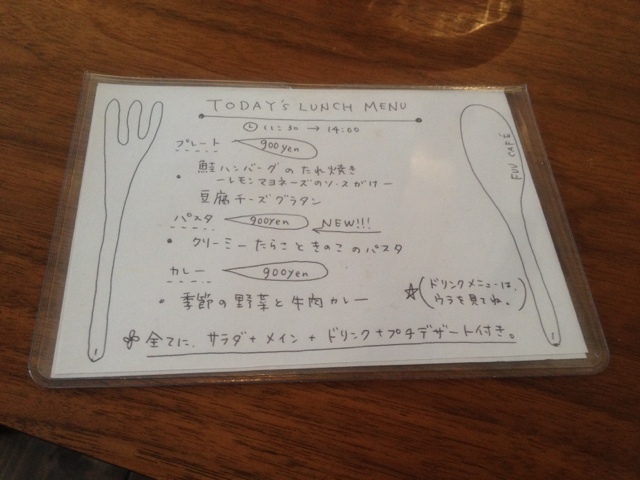 TODAY'S LUNCH MENU
11:30 → 14:00
プレート 900yen
・鮭ハンバーグのたれ焼き
ーレモンマヨネーズのソースがけー
豆腐チーズグラタン
パスタ 900yen NEW!!!
・クリーミーたらこときのこのパスタ
カレー 900yen
・季節の野菜と牛肉カレー
☆(ドリンクメニューは、
ウラを見てね。)
全てに、サラダ+メイン+ドリンク+プチデザート付き。
FUU CAFÉ